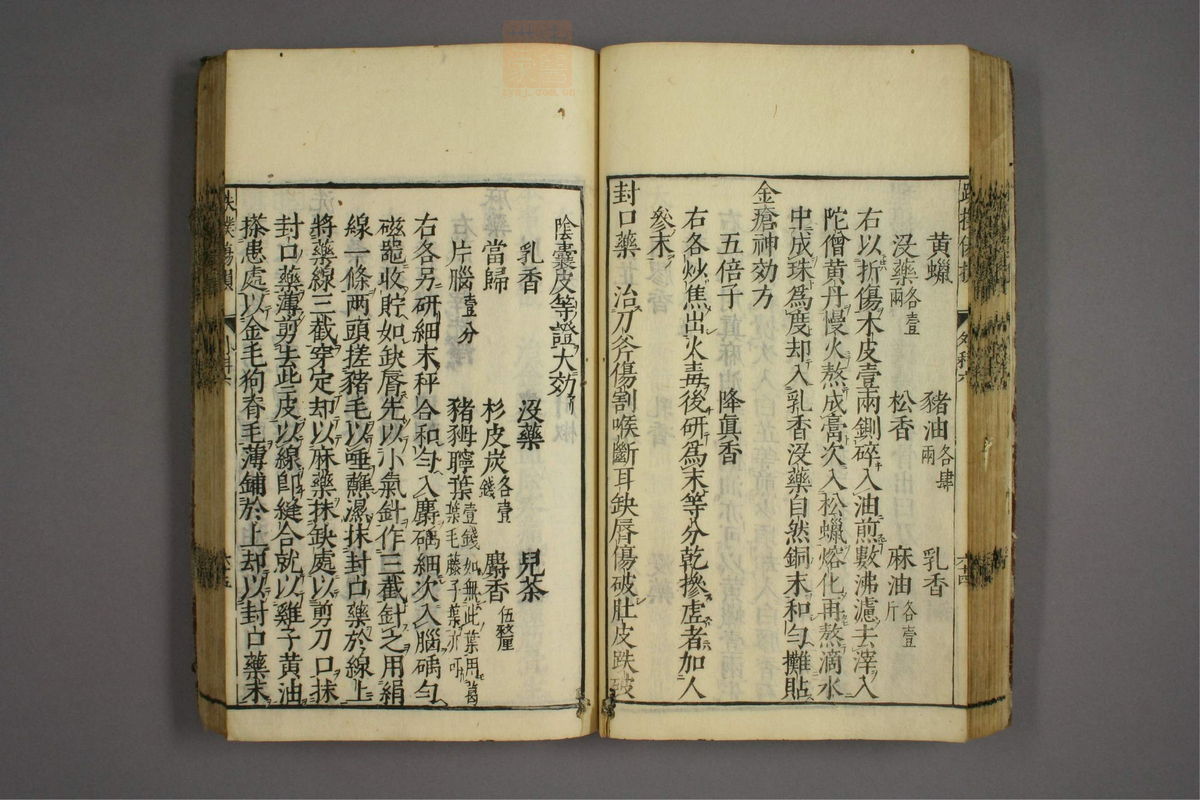 黄蠟 豬油各肆兩 乳香
沒藥各壹兩 松香 麻油各壹斤
右以折傷木皮壹兩鍘碎入油煎數沸濾去滓入
陀僧黄丹慢火熬成膏次入松蠟熔化再熬滴水
中成珠爲度却入乳香沒藥自然銅末和勻攤貼
金瘡神効方
五倍子 降眞香
右各炒焦出火毒後研爲末等分乾摻虛者加人
參末
封口藥 治刀斧傷割喉斷耳缺唇傷破肚皮跌破
陰囊皮等證大効
乳香 沒藥 兒茶
當歸 杉皮炭各壹錢 麝香伍釐
片腦壹分 豬𤘅聹葉壹錢如無此葉用葛葉毛藤子葉亦可
右各另研細末秤合和勻入麝碢細次入腦碢勻
磁器收貯如缺唇先以小氣針作三截針之用絹
線一條兩頭搓豬毛以唾蘸濕抹封口藥於線上
將藥線三截穿定却以麻藥抹缺處以剪刀口抹
封口藥薄剪去此二皮以線卽縫合就以雞子黄油
搽患處以金毛狗脊毛薄鋪於上却以封口藥末
跌撲傷損
外科六
六十五
六十四